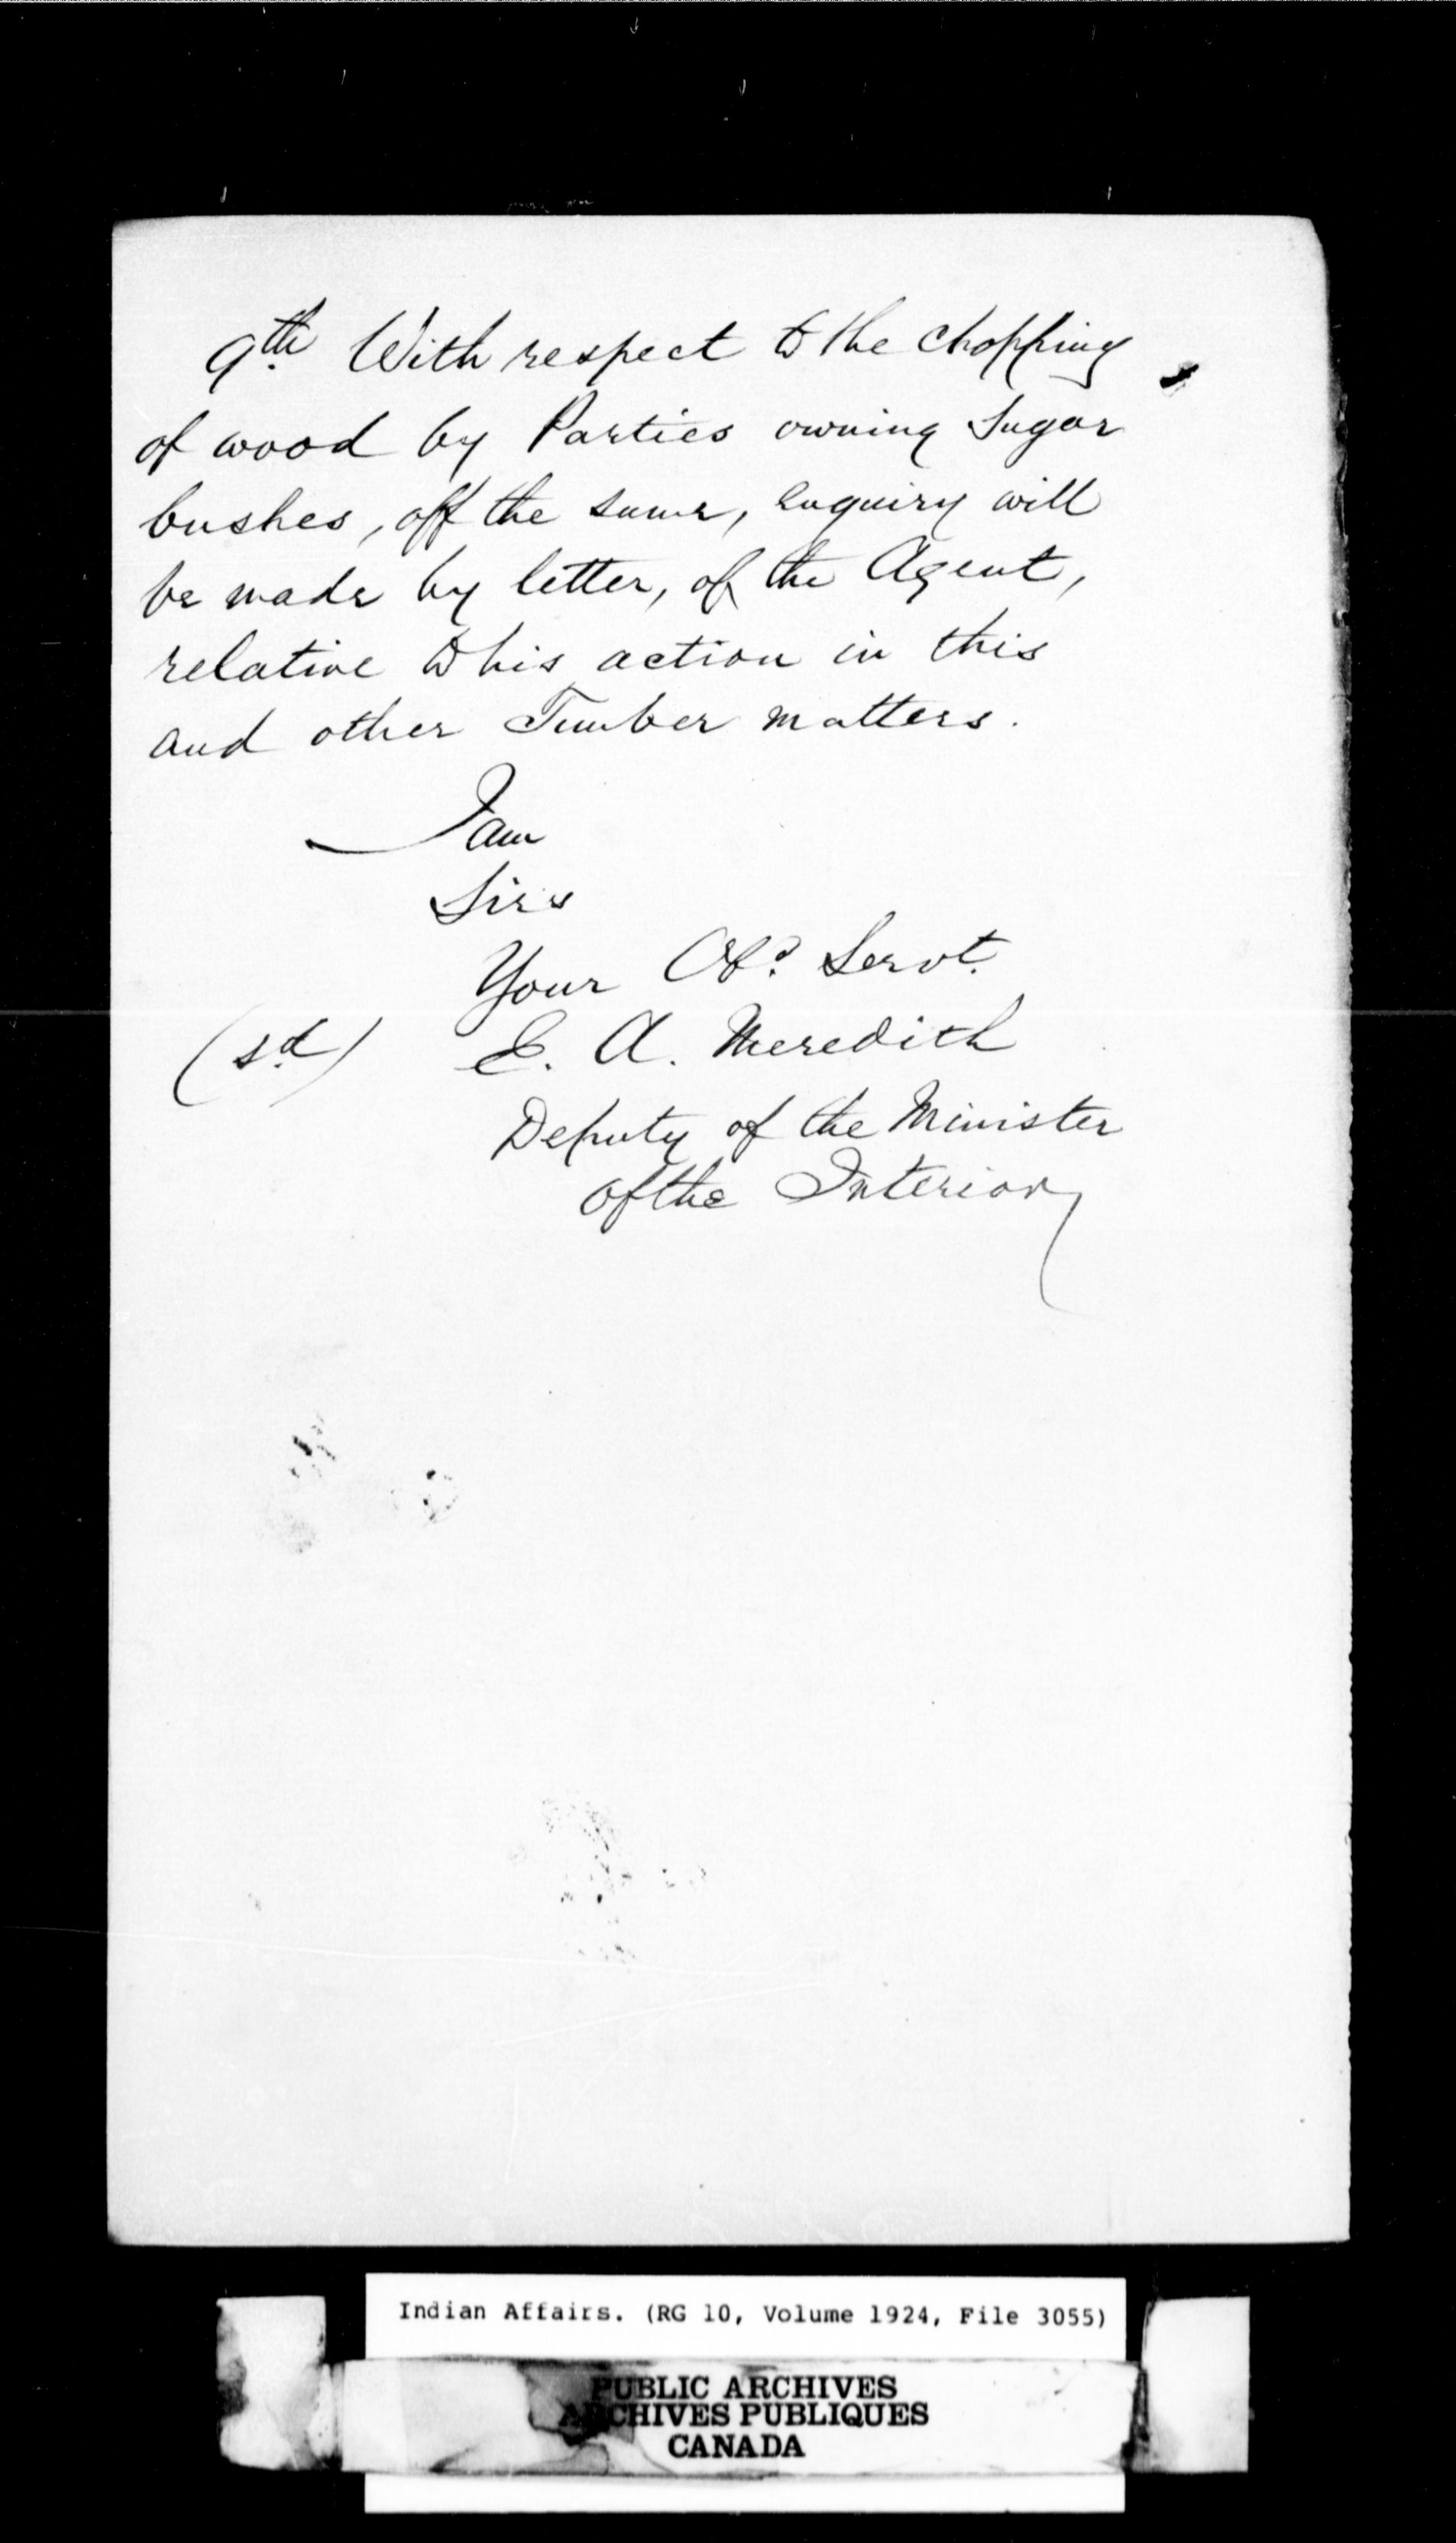 9th. With respect to the chopping
of wood by Parties owning Sugar
bushes, off the same, enquiry will
be made by letter, of the Agent,
relative to his action in this
and other Timber matters.
I am
Sirs
Your Obt. Servt.
(sd) E. A. Meredith
Deputy of the Minister
of the Interior
Indian Affairs. (RG 10, Volume 1924, File 3055)
PUBLIC ARCHIVES
ARCHIVES PUBLIQUES
CANADA